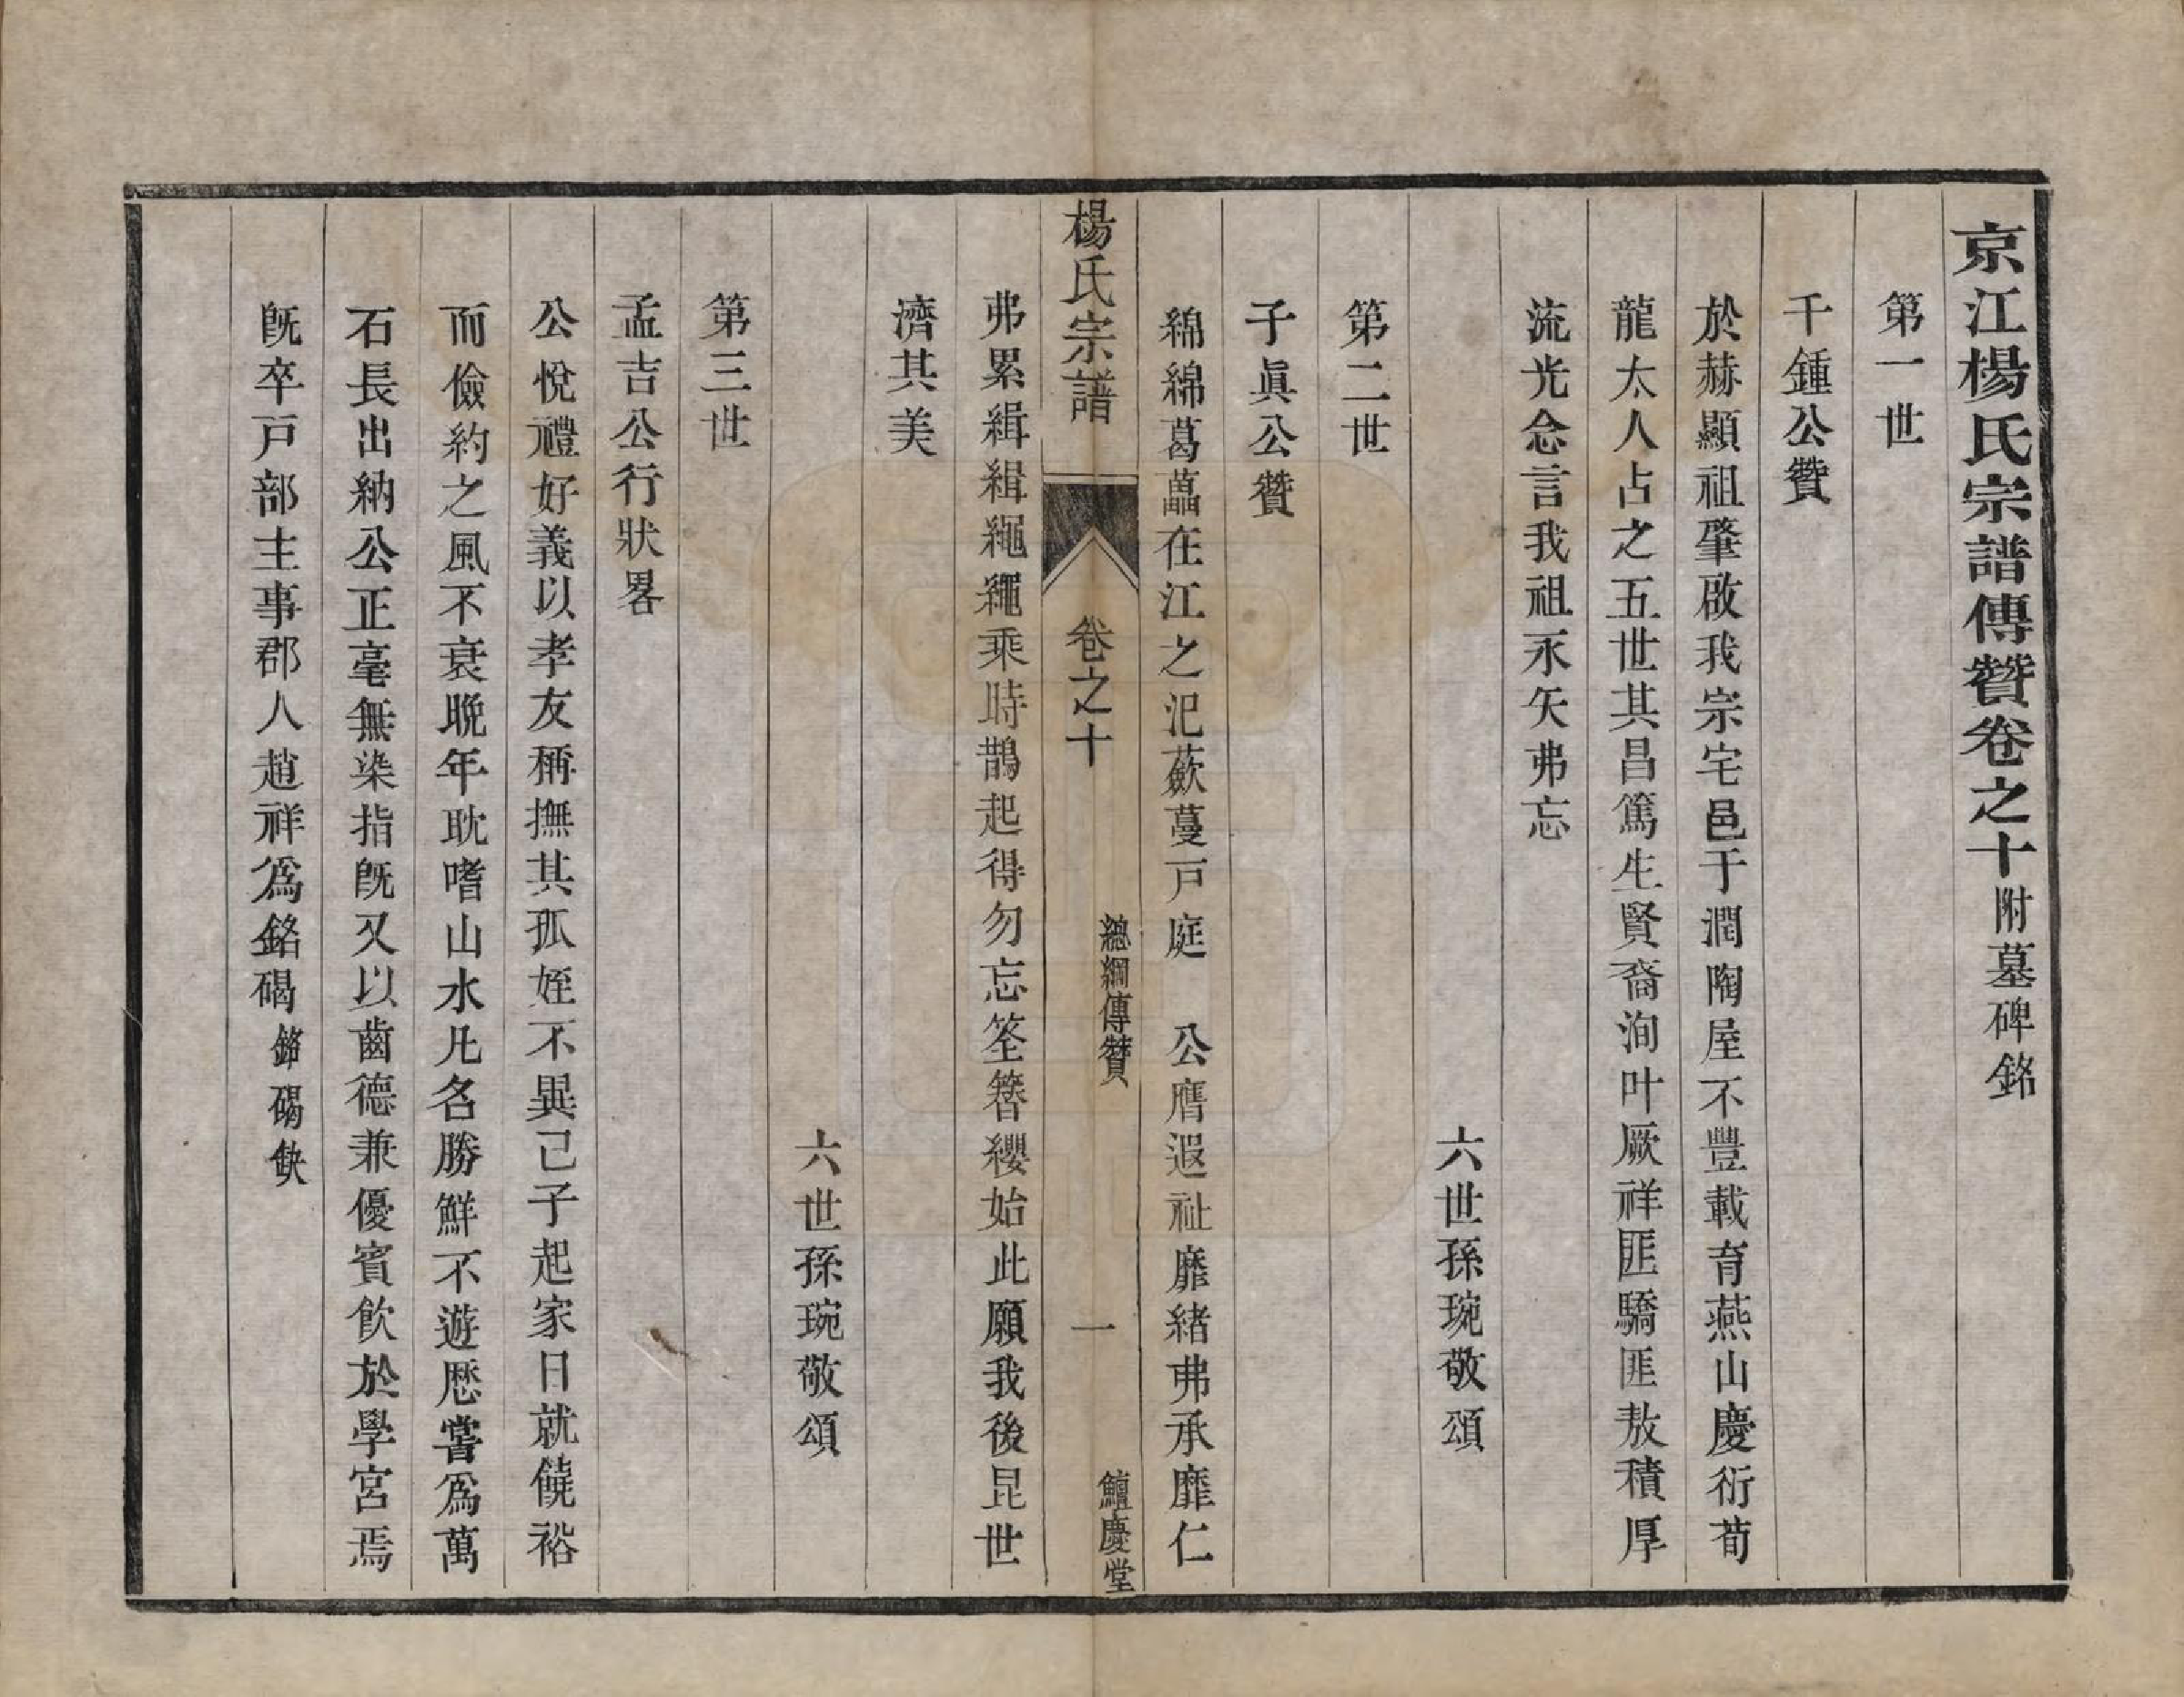 京江楊氏宗譜傳贊卷之十附墓碑銘
第一世
千鍾公贊
於赫顯祖肇啟我宗宅邑于潤陶屋不豐載育燕山慶衍荀
龍太人占之五世其昌篤生賢裔洵叶厥祥匪驕匪敖積厚
流光念言我祖永矢弗忘
六世孫琬敬頌
第二世
子眞公贊
綿綿葛藟在江之汜蔹蔓戸庭　公膺遐祉靡緒弗承靡仁
楊氏宗譜
卷之十
總綱傳贊
一
鱣慶堂
弗累緝緝繩繩乘時鵲起得勿忘筌簪纓始此願我後昆世
濟其美
六世孫琬敬頌
第三世
孟吉公行狀畧
公悅禮好義以孝友稱撫其孤姪不異己子起家日就饒裕
而儉約之風不衰晩年耽嗜山水凡名勝鮮不遊歷嘗爲萬
石長出納公正毫無染指旣又以齒德兼優賓飲於學宮焉
旣卒戸部主事郡人趙祥爲銘碣銘碣缺